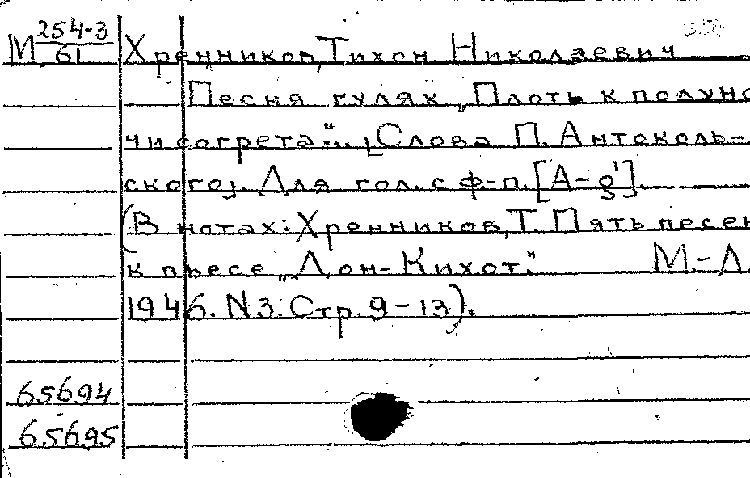 М 254-3/61 Хренников, Тихон Николаевич
Песня гулях „Плоть к полуно
чи согрета"... [Слова П. Антоколь-
ского]. Для гол. с ф-п. [А-g¹].
(В нотах: Хренников, Т. Пять песен
к пьесе „Дон-Кихот." М.-Л.
1946. N3. Стр. 9-13).
65694
65695